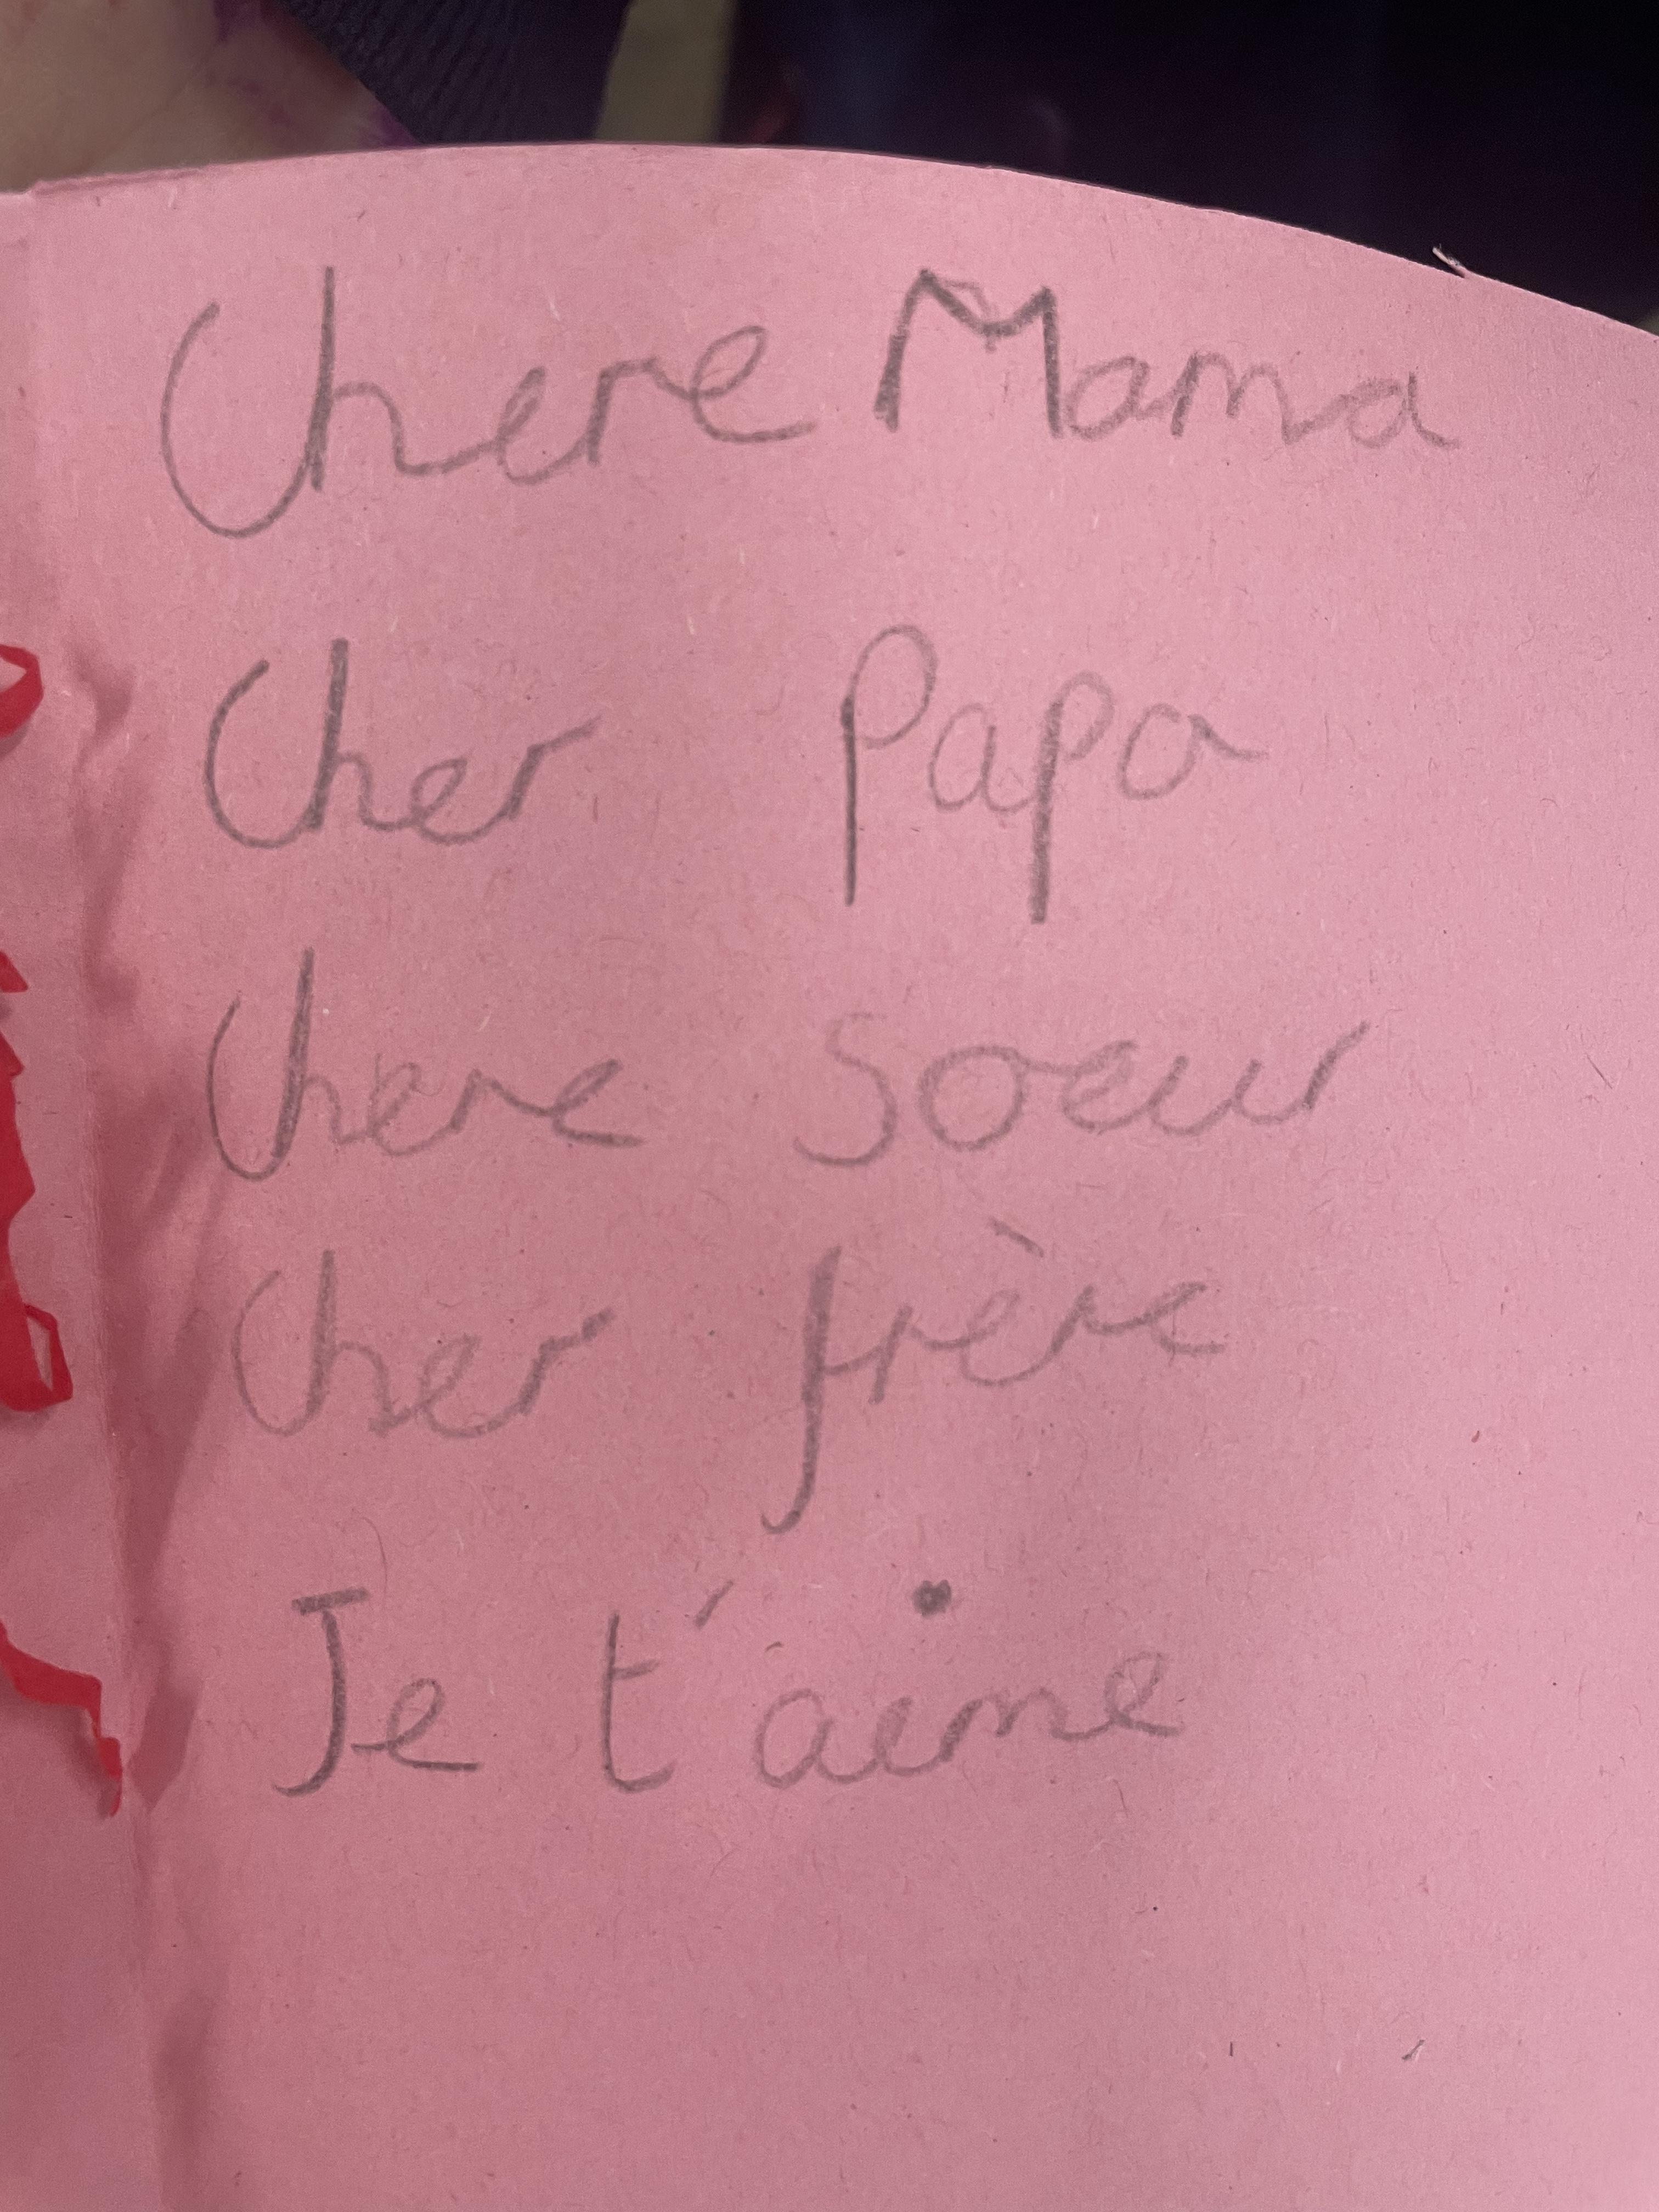 Chere Mama
Cher Papa
Chere Soeur
Cher frère
Je t'aime